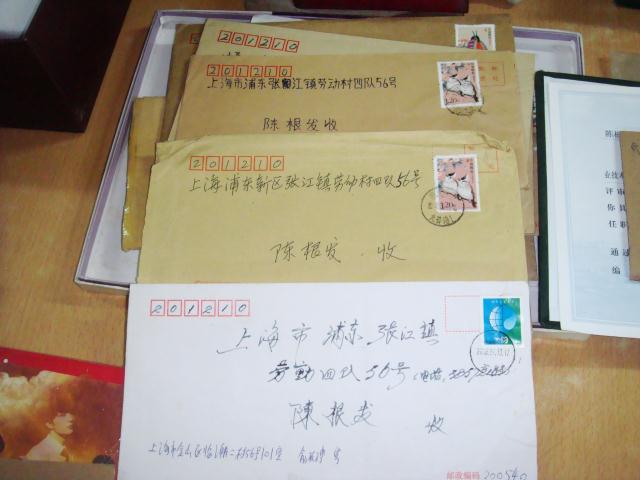 201210
201210
上海市浦东张江镇劳动村四队56号
陈根发收
1.20元
201210
上海浦东新区张江镇劳动村四队56号
1.20元
陈根发 收
201210
上海市浦东张江镇
劳动四队56号
陳根发 收
邮政编码 200540
业技术
评审
你具
任职
通过
编